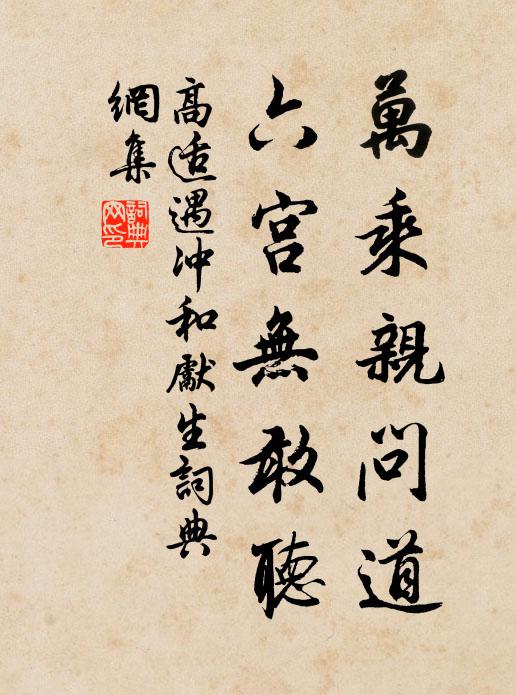 萬乘親問道
六宮無敢聽
高適遇沖和獻生詞典
網集
詞典
网印